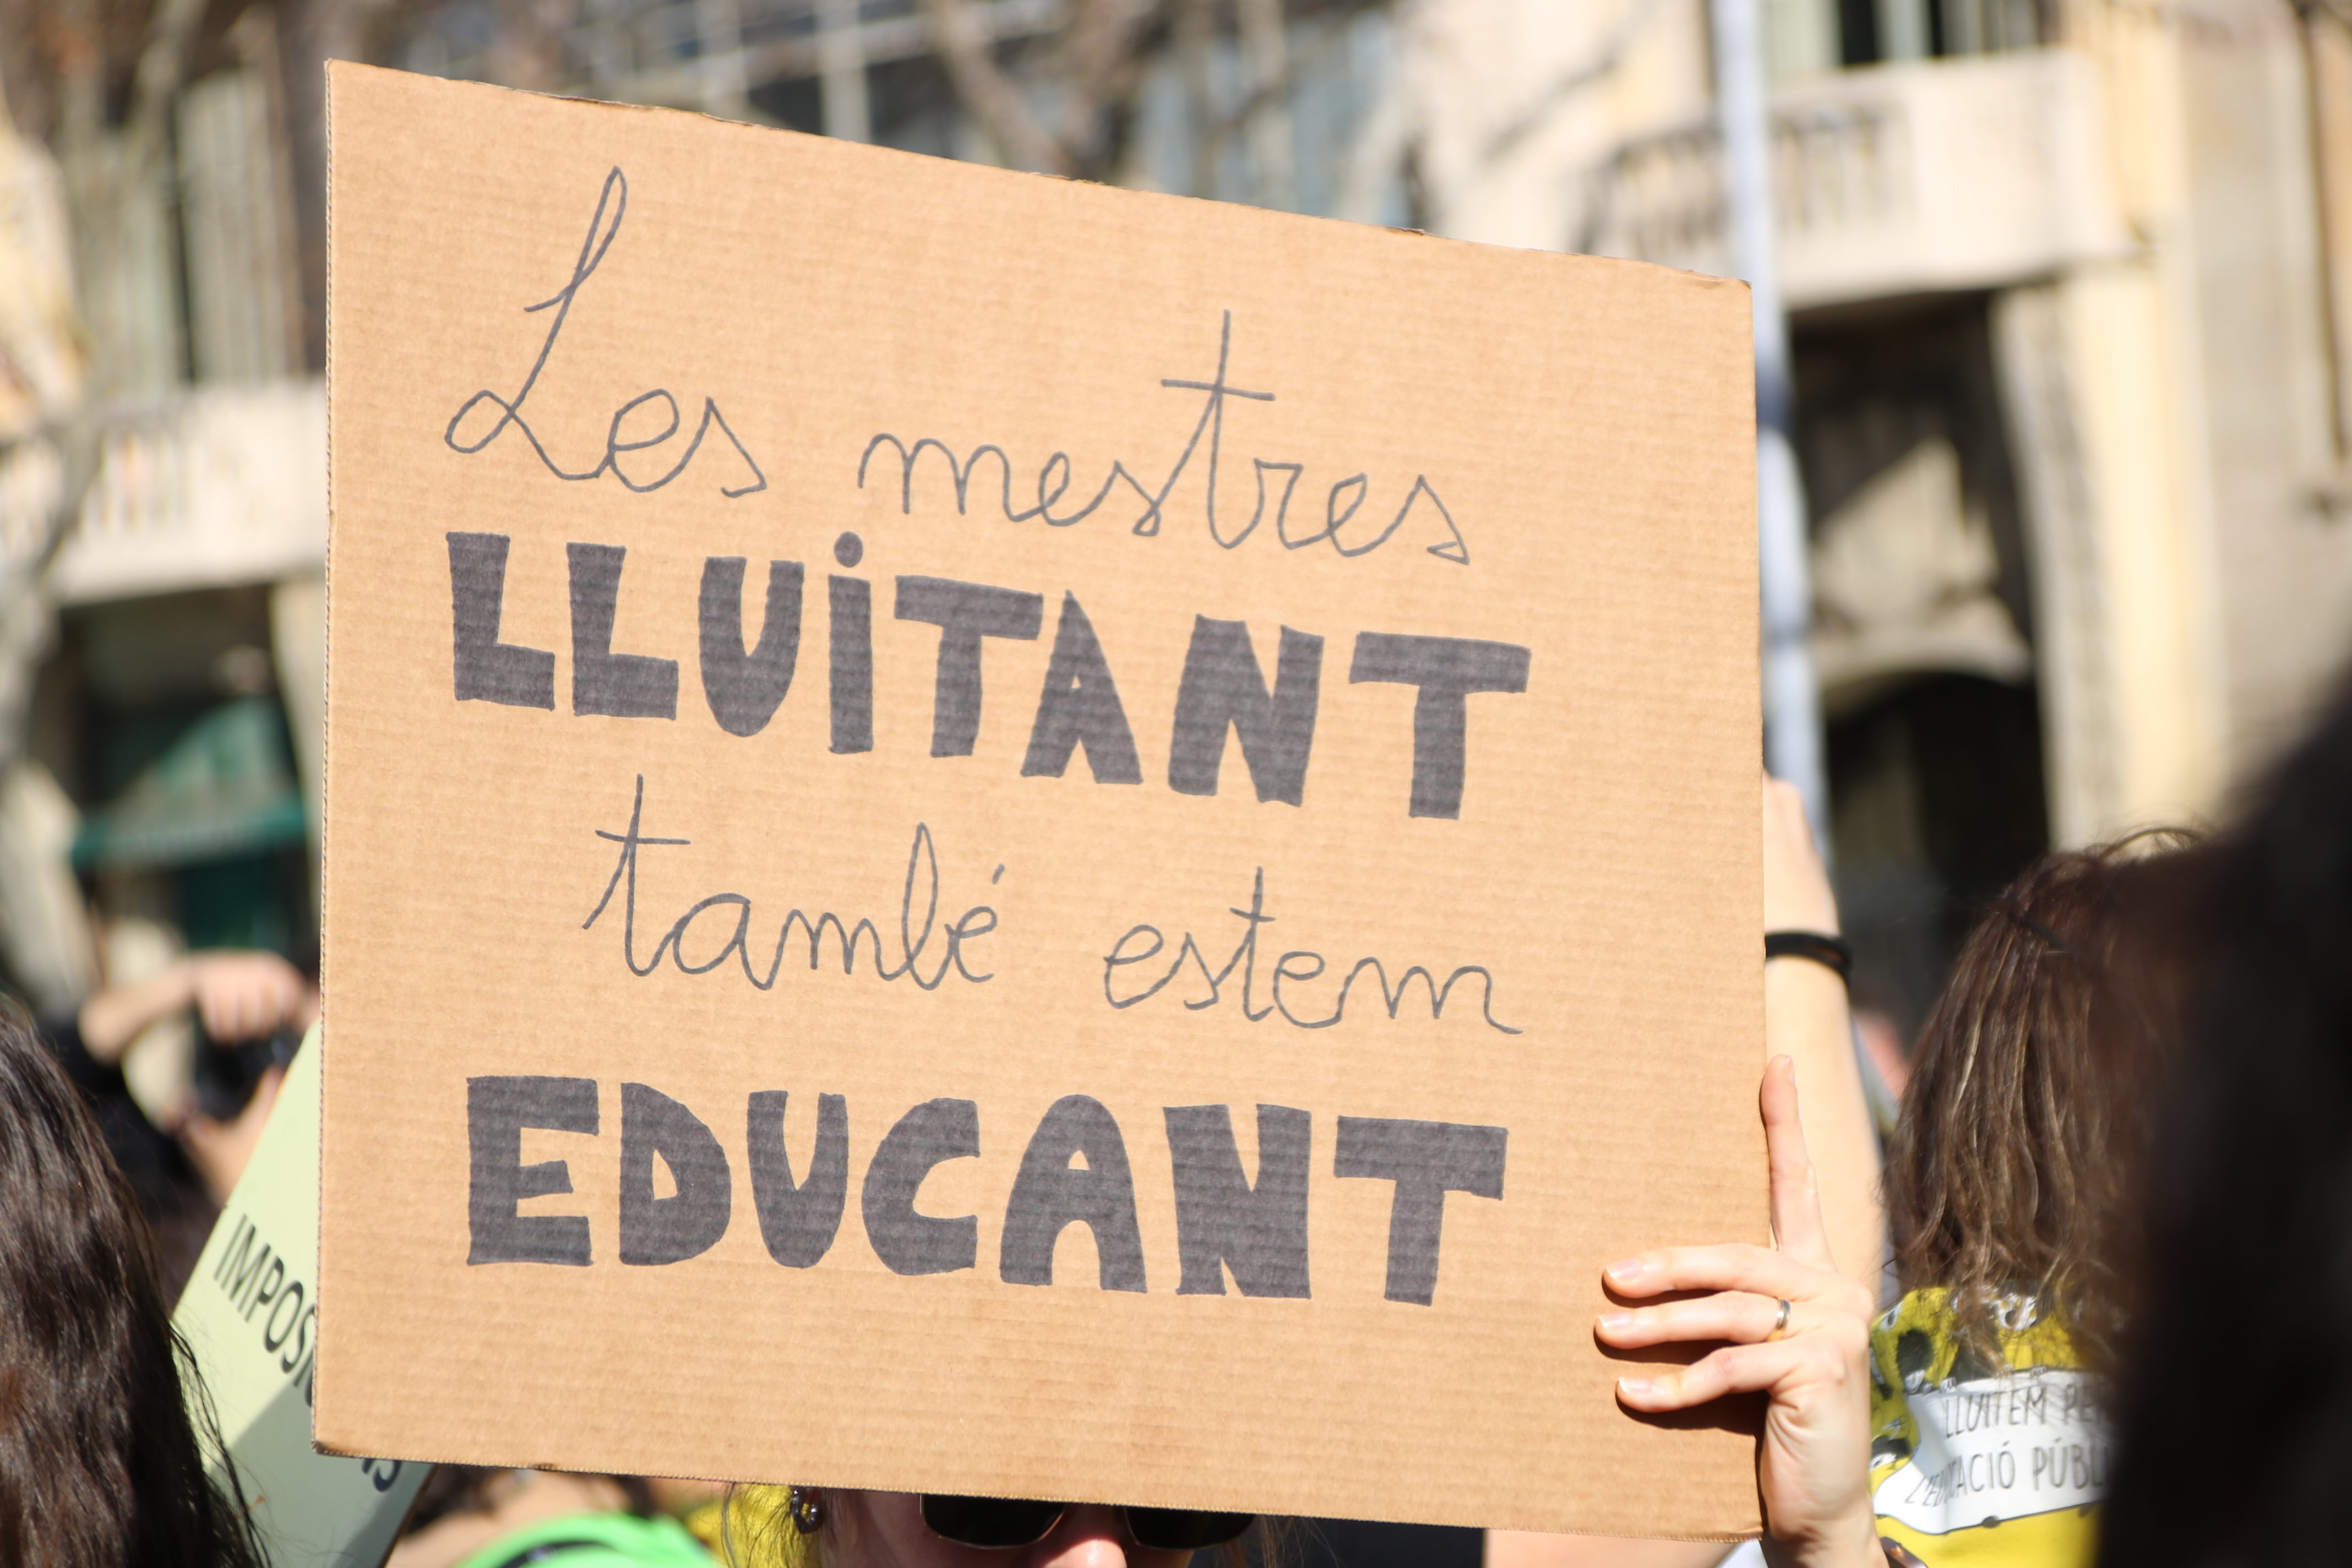 Les mestres
LLUiTANT
també estem
EDUCANT
LLUITEM PE
L'EDUCACIÓ PÚBL